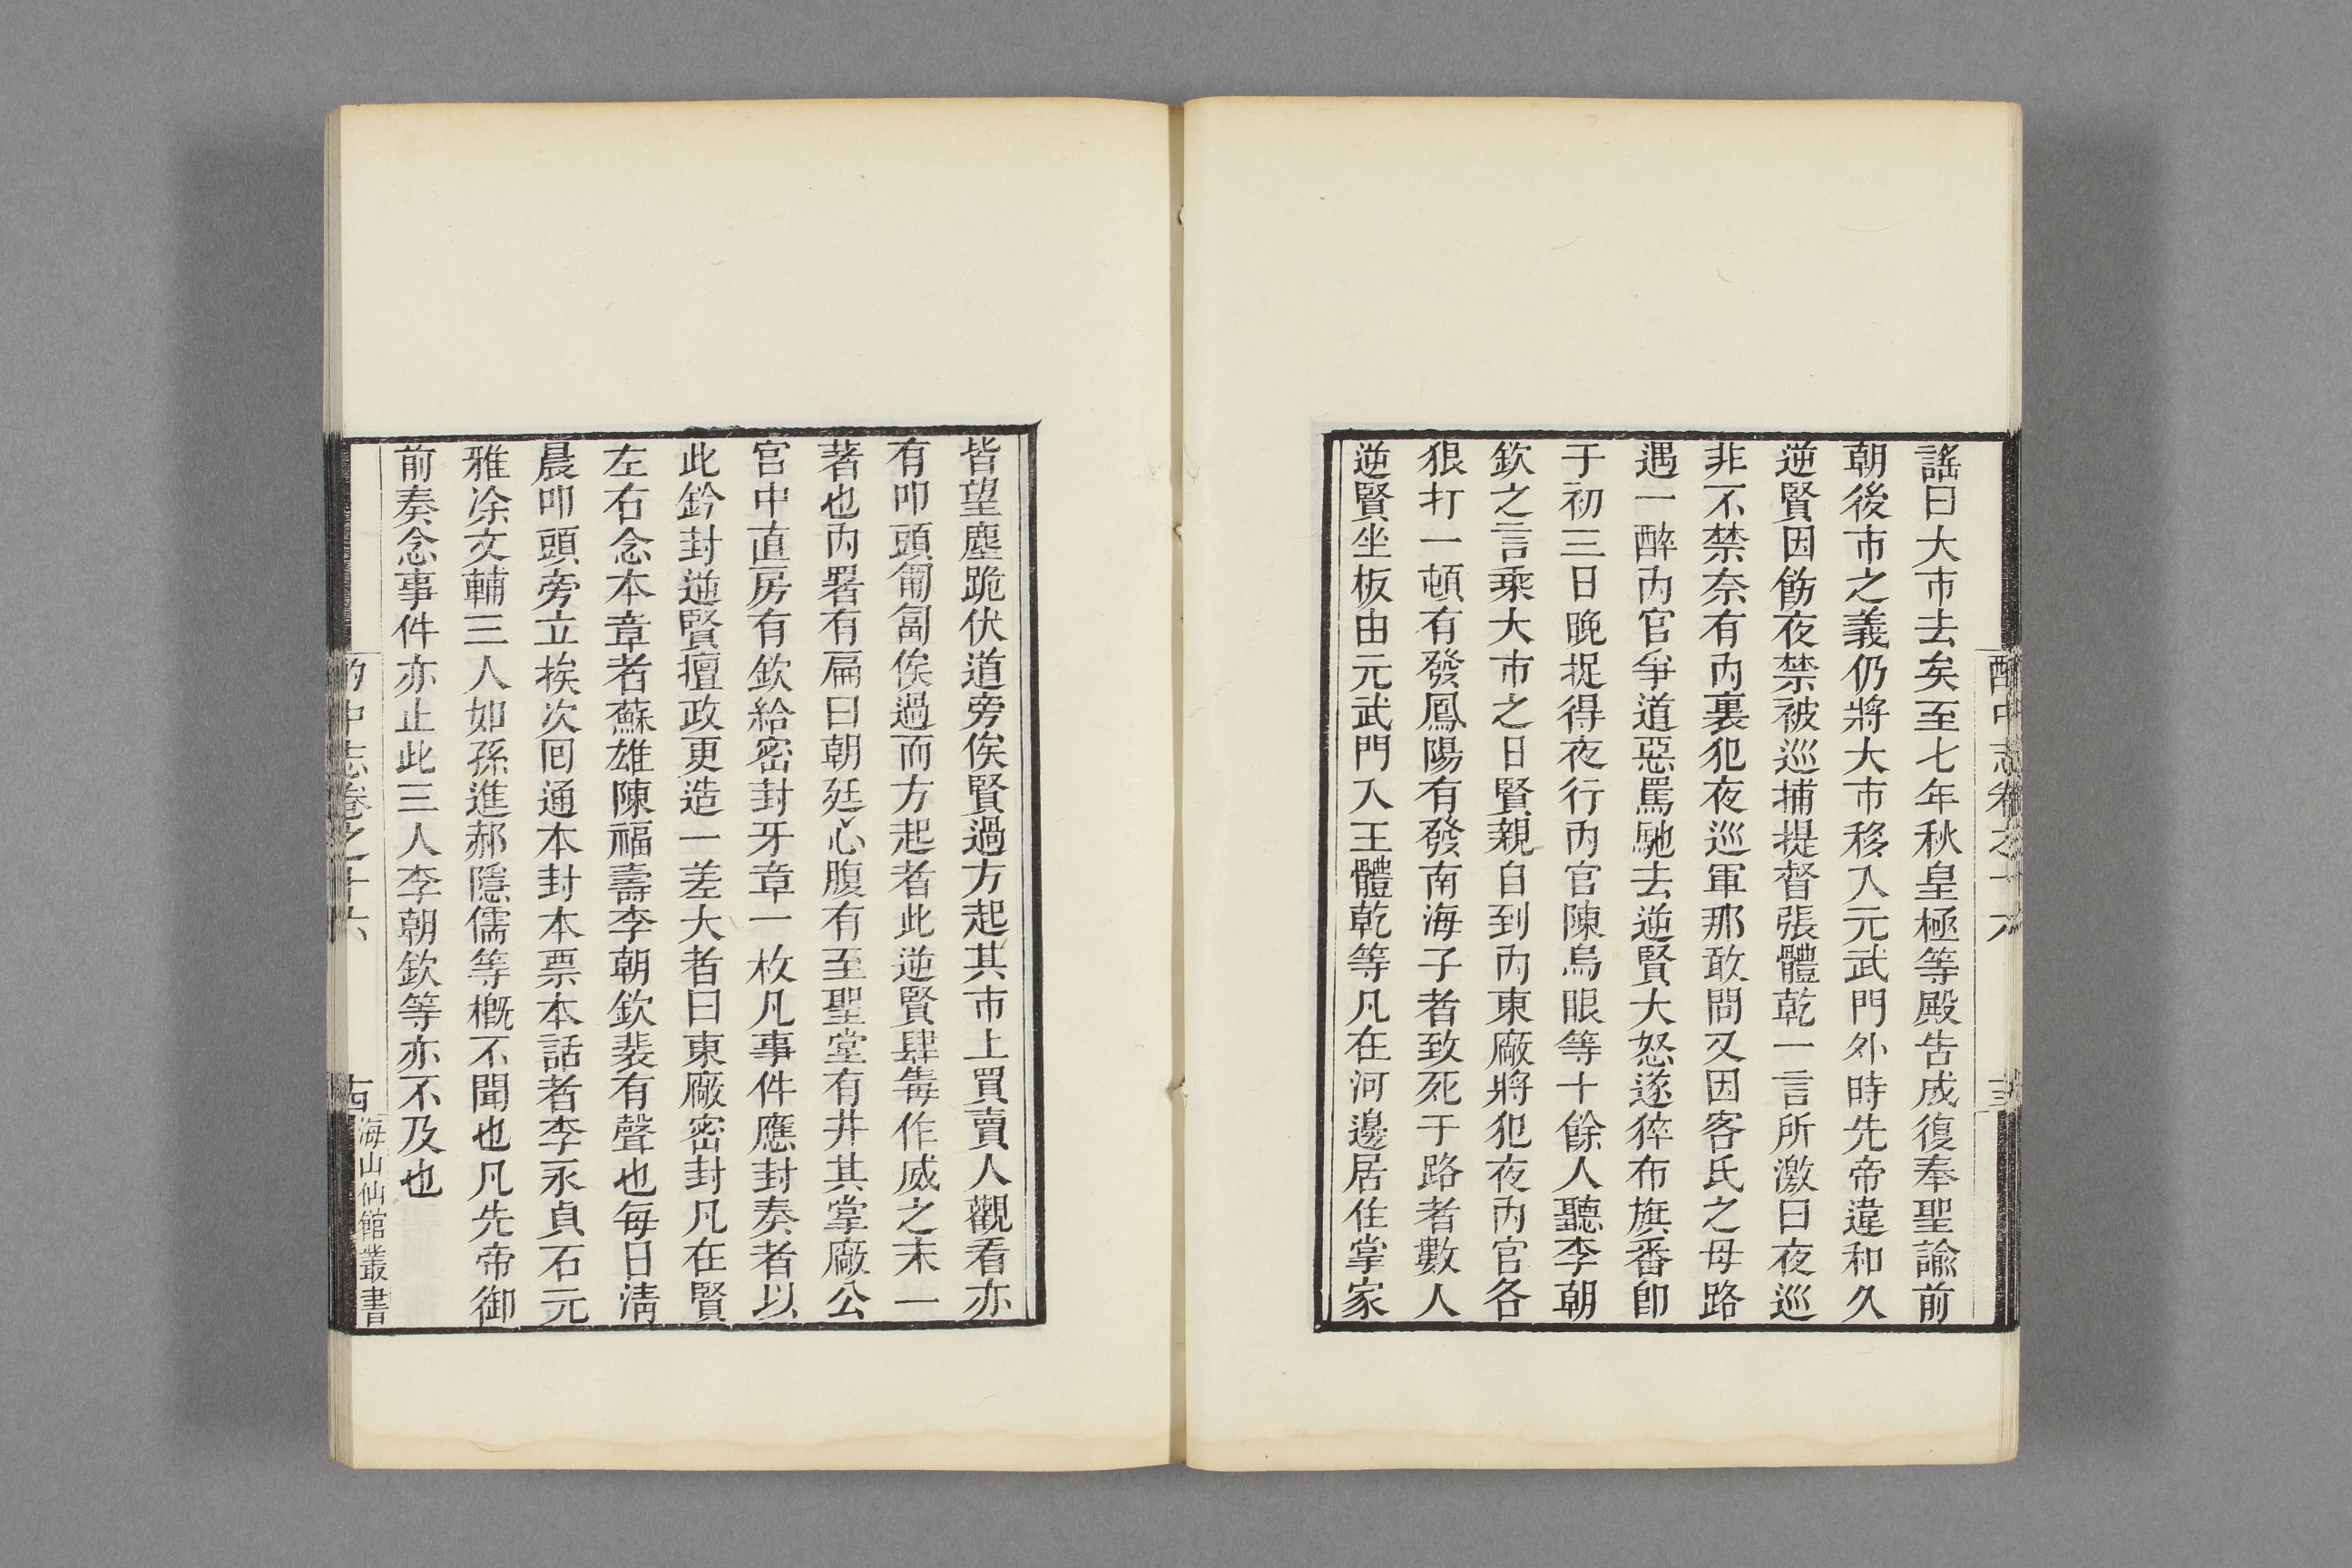 酌中志卷之十六
謠曰大市去矣至七年秋皇極等殿告成復奉聖諭前
朝後市之義仍將大市移入元武門外時先帝違和久
逆賢因飭夜禁被巡捕提督張體乾一言所激曰夜巡
非不禁奈有內裏犯夜巡軍那敢問又因客氏之母路
遇一醉內官爭道惡罵馳去逆賢大怒遂猝布旗番卽
于初三日晚捉得夜行內官陳烏眼等十餘人聽李朝
欽之言乘大市之日賢親自到內東廠將犯夜內官各
狠打一頓有發鳳陽有發南海子者致死于路者數人
逆賢坐板由元武門入王體乾等凡在河邊居住掌家
皆望塵跪伏道旁俟賢過方起其市上買賣人觀看亦
有叩頭匍匐俟過而方起者此逆賢肆毒作威之末一
著也內署有扁曰朝廷心腹有至聖堂有井其掌廠公
宮中直房有欽給密封牙章一枚凡事件應封奏者以
此鈐封逆賢擅政更造一差大者曰東廠密封凡在賢
左右念本章者蘇雄陳福壽李朝欽裴有聲也每日清
晨叩頭旁立挨次回通本封本票本話者李永貞石元
雅凃文輔三人如孫進郝隱儒等槪不聞也凡先帝御
前奏念事件亦止此三人李朝欽等亦不及也
酌中志卷之十六
海山仙館叢書